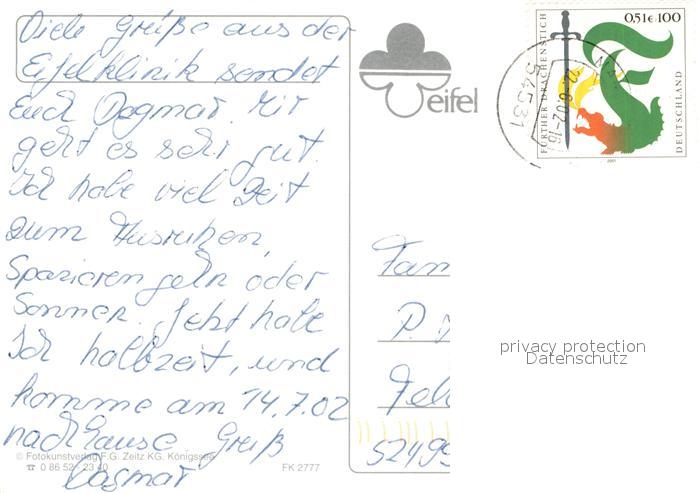 Viele Grüße aus der
Eifelklinik sendet
Euch Dagmar. Mir
geht es sehr gut.
Ich habe viel Zeit
zum Ausruhen,
Spazieren gehn oder
Sonnen. Jetzt habe
Ich halbzeit, und
komme am 14.7.02
nach Hause Gruß
Dagmar
© Fotokunstverlag F.G. Zeitz KG, Königssee
☎ 0 86 52 - 23 40
FK 2777
eifel
0,51€ 100
FÜRTHER DRACHENSTICH
DEUTSCHLAND
2001
54531
22.-6.02-16
Fam
P.
52499
privacy protection
Datenschutz